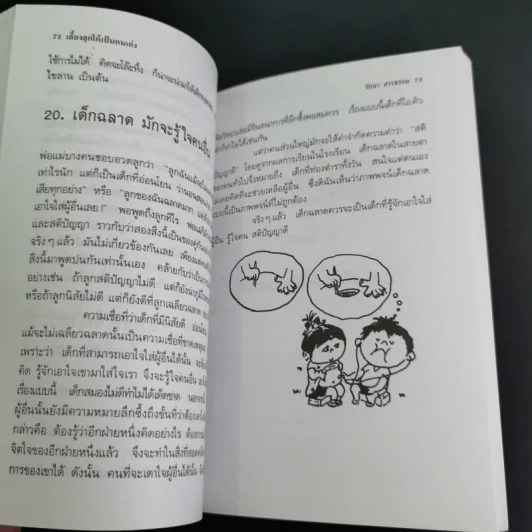 72 เลี้ยงลูกให้เป็นคนเก่ง
ใช้การไม่ได้ คิดจะโล๊ะทิ้ง ก็น่าจะนำมาให้เด็ก
ไขลาน เป็นต้น
20. เด็กฉลาด มักจะรู้ใจคนอื่น
พ่อแม่บางคนชอบอวดลูกว่า "ลูกฉันแม้
เท่าไรนัก แต่ก็เป็นเด็กที่อ่อนโยน ว่านอนสอน
เสียทุกอย่าง" หรือ "ลูกของฉันฉลาดมาก
เอาใจใส่ผู้อื่นเลย!" พอพูดถึงลูกทีไร พ่อแม่
และสติปัญญา ราวกับว่าสองสิ่งนี้เป็นของคู่กัน
จริงๆ แล้ว มันไม่เกี่ยวข้องกันเลย เพียงแต่
สิ่งนี้มาพูดปนกันเท่านั้นเอง คล้ายกับว่าเป็น
อย่างเช่น ถ้าลูกสติปัญญาไม่ดี แต่ก็ยัง
หรือถ้าลูกนิสัยไม่ดี แต่ก็ยังดีที่ลูกเฉลียวฉลาด
ความเชื่อที่ว่าเด็กที่มีนิสัยดี
แม้จะไม่เฉลียวฉลาดนั้นเป็นความเชื่อที่ขาดเหตุผล
เพราะว่า เด็กที่สามารถเอาใจใส่ผู้อื่นได้นั้น
คิด รู้จักเอาใจเขามาใส่ใจเรา จึงจะรู้ใจคนอื่น
เรื่องแบบนี้ เด็กสมองไม่ดีทำไม่ได้เด็ดขาด
ผู้อื่นนั้นยังมีความหมายลึกซึ้งถึงขั้นที่ว่าต้อง
กล่าวคือ ต้องรู้ว่าอีกฝ่ายหนึ่งคิดอย่างไร ต้องการ
จิตใจของอีกฝ่ายหนึ่งแล้ว จึงจะทำในสิ่งที่สอดคล้อง
การของเขาได้ ดังนั้น คนที่จะเดาใจผู้อื่นได้นั้น
รักษา สารธรรม 73
จินตนาการที่ลึกซึ้งพอสมควร เรื่องแบบนี้เด็กที่ไอ.คิว.
แต่ว่าคนส่วนใหญ่มักจะให้คำจำกัดความคำว่า "สติ
ปัญญาดี" โดยดูจากผลการเรียนในโรงเรียน เด็กฉลาดในสายตา
ของคนทั่วไปจึงหมายถึง เด็กที่ท่องตำราทั้งวัน สนใจแต่ตนเอง
คิดที่จะช่วยเหลือผู้อื่น ซึ่งดิฉันเห็นว่าภาพพจน์เด็กฉลาด
แบบนี้เป็นภาพพจน์ที่ไม่ถูกต้อง
จริงๆ แล้ว เด็กฉลาดควรจะเป็นเด็กที่รู้จักเอาใจใส่
ผู้อื่น รู้ใจคน สติปัญญาดี